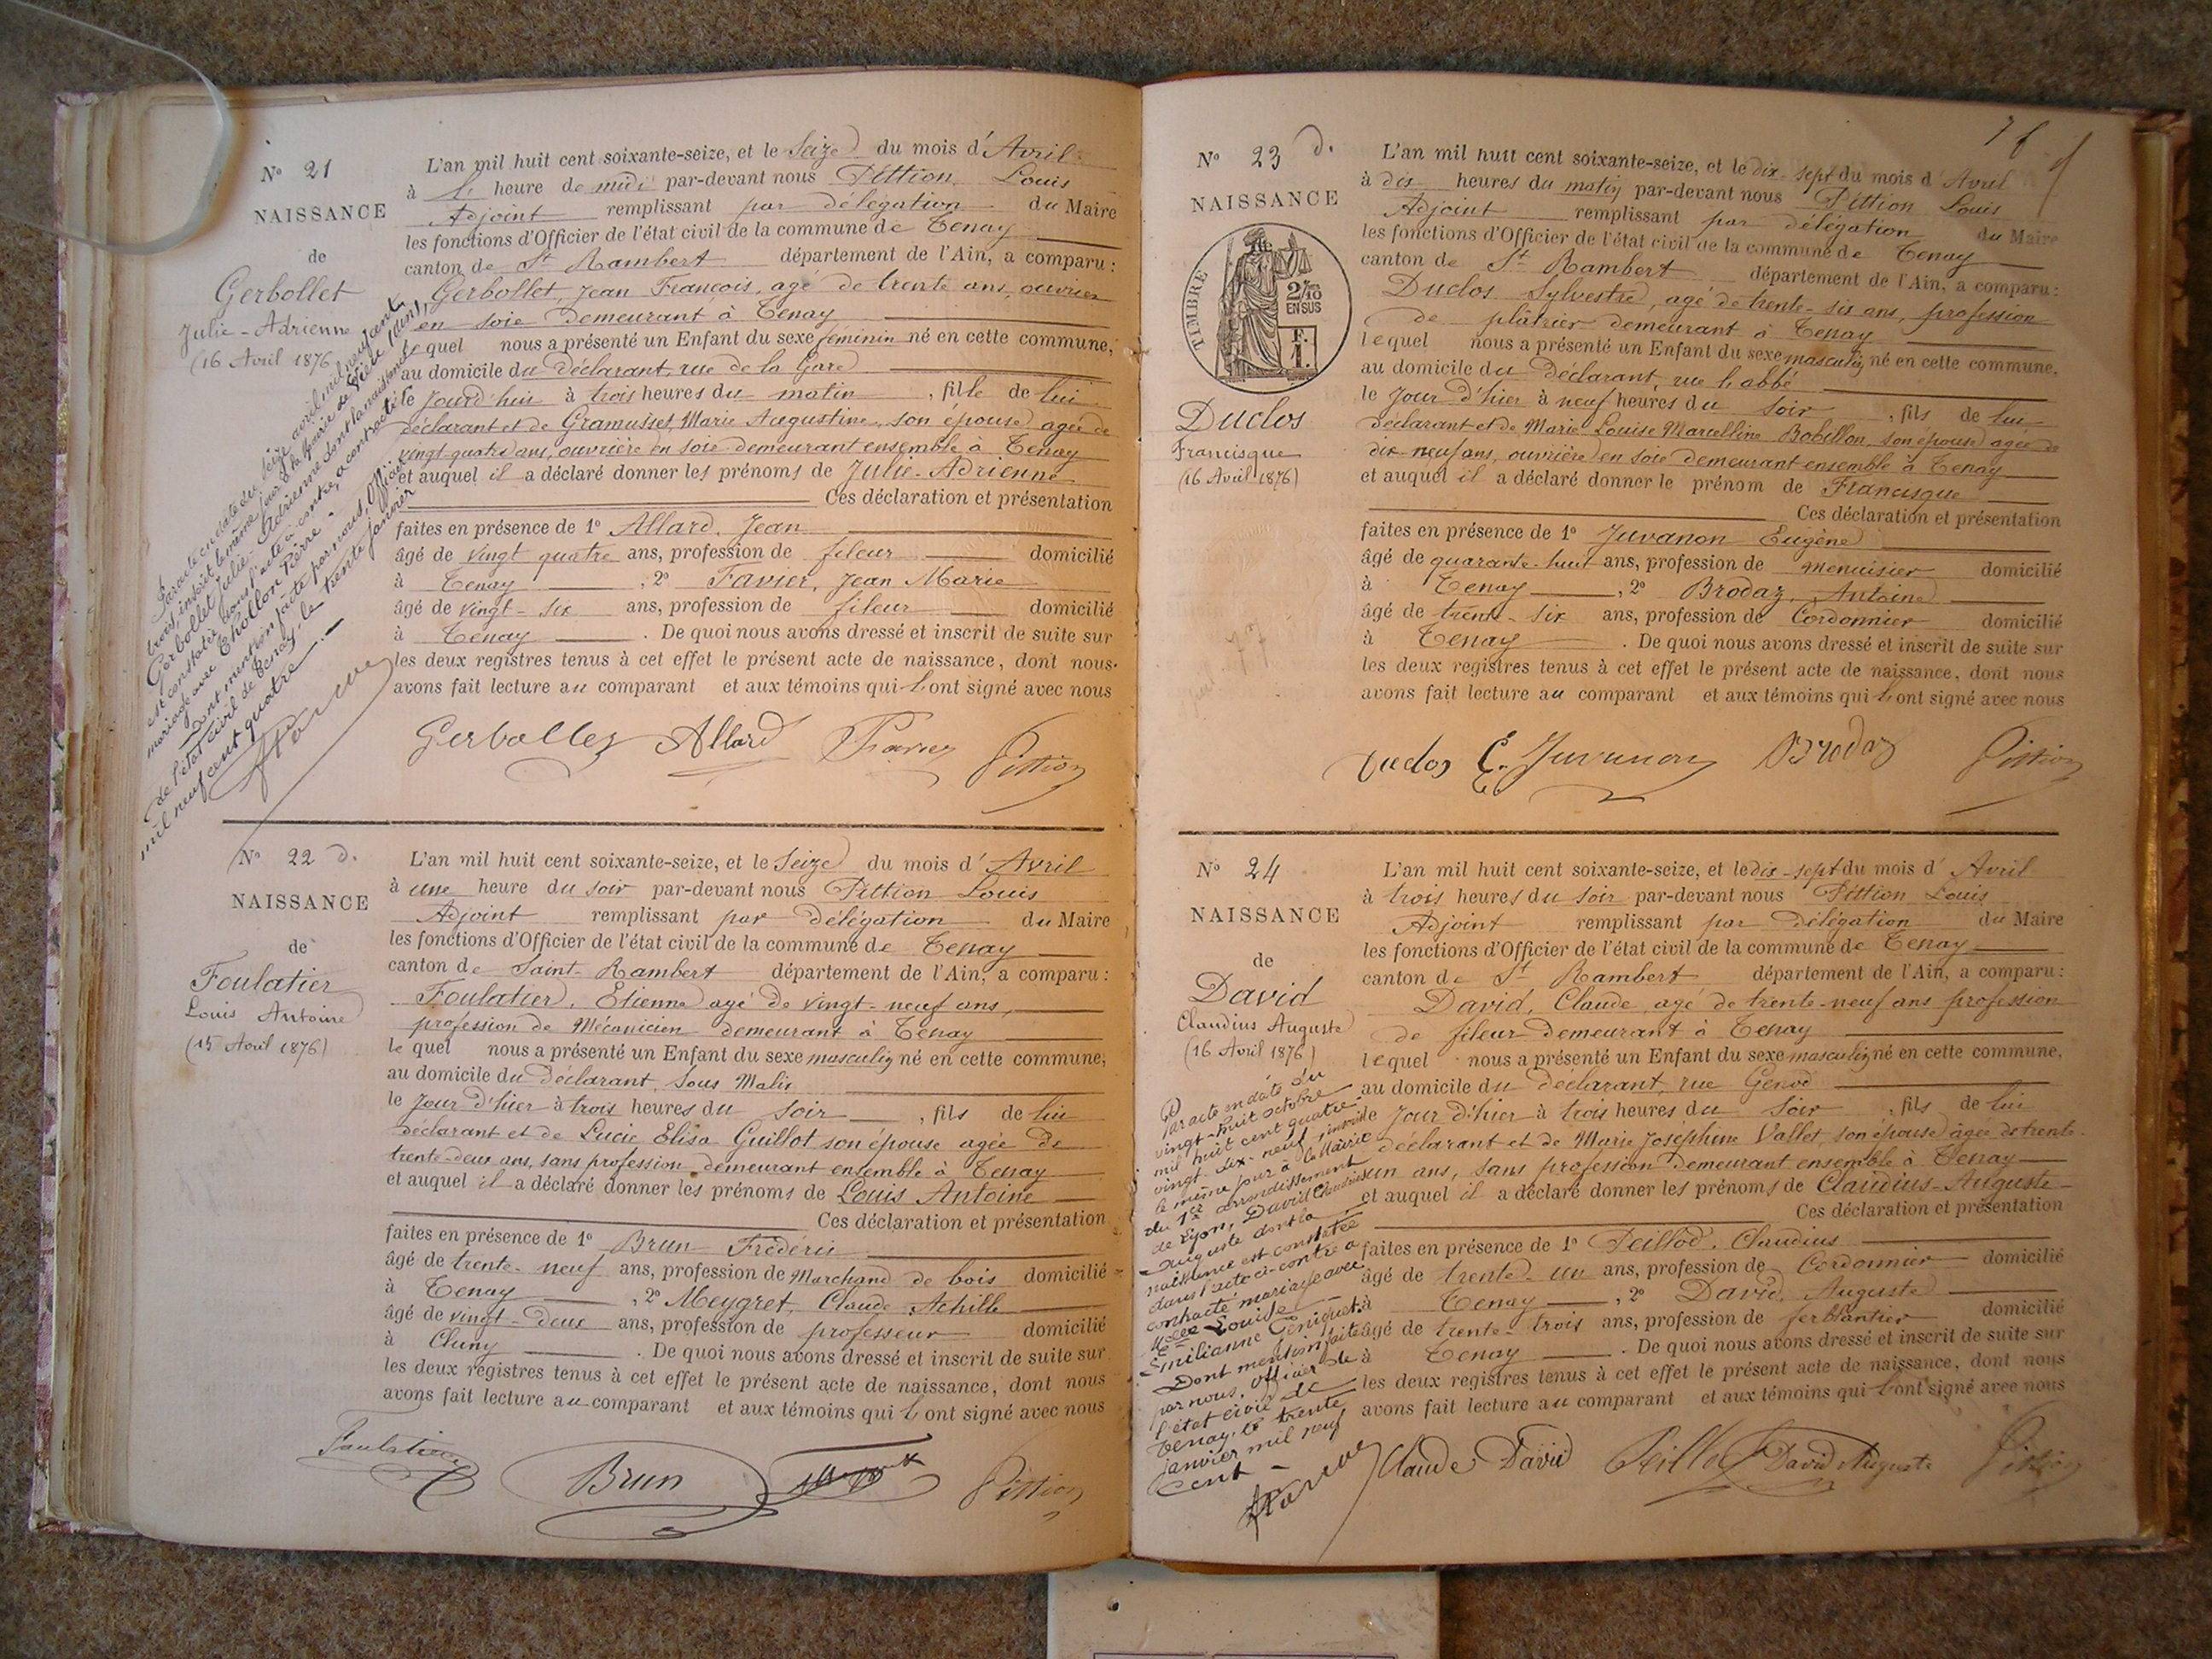 N° 21
NAISSANCE
de
Gerbollet
Julie-Adrienne
(16 Avril 1876)
Par acte en date du seize avril mil neuf cent
trois, inscrit le même jour à la Mairie de
Gerbollet Julie-Adrienne dont la naissance
est constatée dans l'acte ci-contre, a contracté
mariage avec Thollon Pierre.
Dont mention faite par nous, Officier
de l'état civil de Tenay, le trente janvier
mil neuf cent quatre.
L'an mil huit cent soixante-seize, et le Seize du mois d'Avril
à heure de midi par-devant nous Pittion Louis
Adjoint remplissant par délégation du Maire
les fonctions d'Officier de l'état civil de la commune de Tenay
canton de St Rambert département de l'Ain, a comparu :
Gerbollet, Jean François, agé de trente ans, ouvrier
en soie demeurant à Tenay
lequel nous a présenté un Enfant du sexe féminin né en cette commune,
au domicile du Déclarant, rue de la Gare
le jourd'hui à trois heures du matin , fille de lui
déclarant et de Gramusset, Marie Augustine, son épouse agée de
vingt quatre ans, ouvrière en soie demeurant ensemble à Tenay
et auquel il a déclaré donner les prénoms de Julie-Adrienne
Ces déclaration et présentation
faites en présence de 1° Allard, Jean
âgé de vingt quatre ans, profession de fileur domicilié
à Tenay , 2° Favier, Jean Marie
âgé de vingt-six ans, profession de fileur domicilié
à Tenay . De quoi nous avons dressé et inscrit de suite sur
les deux registres tenus à cet effet le présent acte de naissance, dont nous
avons fait lecture au comparant et aux témoins qui l'ont signé avec nous
Gerbollet Allard Favier Pittion
N° 22 d.
NAISSANCE
de
Foulatier
Louis Antoine
(15 Avril 1876)
L'an mil huit cent soixante-seize, et le Seize du mois d'Avril
à une heure du soir par-devant nous Pittion Louis
Adjoint remplissant par délégation du Maire
les fonctions d'Officier de l'état civil de la commune de Tenay
canton de Saint-Rambert département de l'Ain, a comparu :
Foulatier, Etienne agé de vingt-neuf ans,
profession de Mécanicien demeurant à Tenay
le quel nous a présenté un Enfant du sexe masculin né en cette commune,
au domicile du Déclarant, Sous Malix
le jour d'hier à trois heures du soir , fils de lui
déclarant et de Lucie Elisa Guillot son épouse agée de
trente-deux ans, sans profession demeurant ensemble à Tenay
et auquel il a déclaré donner les prénoms de Louis Antoine
Ces déclaration et présentation
faites en présence de 1° Brun Frédéric
âgé de trente-neuf ans, profession de Marchand de bois domicilié
à Tenay , 2° Meygret, Claude Achille
âgé de vingt-deux ans, profession de professeur domicilié
à Cluny . De quoi nous avons dressé et inscrit de suite sur
les deux registres tenus à cet effet le présent acte de naissance, dont nous
avons fait lecture au comparant et aux témoins qui l'ont signé avec nous
Foulatier Brun Pittion
N° 23 d.
NAISSANCE
TIMBRE
2/10
EN SUS
F.
1.
Duclos
Francisque
(16 Avril 1876)
L'an mil huit cent soixante-seize, et le dix-sept du mois d'Avril
à dix heures du matin par-devant nous Pittion Louis
Adjoint remplissant par délégation du Maire
les fonctions d'Officier de l'état civil de la commune de Tenay
canton de St Rambert département de l'Ain, a comparu :
Duclos Sylvestre, agé de trente-six ans, profession
de plâtrier demeurant à Tenay
lequel nous a présenté un Enfant du sexe masculin né en cette commune,
au domicile du Déclarant, rue l'abbé
le jour d'hier à neuf heures du soir , fils de lui
déclarant et de Marie-Louise Marcelline Bobillon son épouse agée de
dix-neuf ans, ouvrière en soie demeurant ensemble à Tenay
et auquel il a déclaré donner le prénom de Francisque
Ces déclaration et présentation
faites en présence de 1° Juvanon Eugène
âgé de quarante-huit ans, profession de menuisier domicilié
à Tenay , 2° Brodaz, Antoine
âgé de trente-six ans, profession de Cordonnier domicilié
à Tenay . De quoi nous avons dressé et inscrit de suite sur
les deux registres tenus à cet effet le présent acte de naissance, dont nous
avons fait lecture au comparant et aux témoins qui l'ont signé avec nous
Duclos E. Juvanon Brodaz Pittion
N° 24
NAISSANCE
de
David
Claudius Auguste
(16 Avril 1876)
Par acte en date du
vingt-huit octobre
mil huit cent quatre-
vingt-dix-neuf, inscrit
le même jour à la Mairie
du 1er arrondissement
de Lyon, David Claudius
Auguste dont la
naissance est constatée
dans l'acte ci-contre a
contracté mariage avec
Melle Louise
Emilianne Géniquet.
Dont mention faite
par nous, officier de
l'état civil de
Tenay, le trente
janvier mil neuf
cent -
L'an mil huit cent soixante-seize, et le dix-sept du mois d'Avril
à trois heures du soir par-devant nous Pittion Louis
Adjoint remplissant par délégation du Maire
les fonctions d'Officier de l'état civil de la commune de Tenay
canton de St Rambert département de l'Ain, a comparu :
David, Claude, agé de trente-neuf ans profession
de fileur demeurant à Tenay
lequel nous a présenté un Enfant du sexe masculin né en cette commune,
au domicile du déclarant, rue Genod
le jour d'hier à trois heures du soir , fils de lui
déclarant et de Marie Joséphine Vallet, son épouse âgée de trente-
un ans, sans profession demeurant ensemble à Tenay
et auquel il a déclaré donner les prénoms de Claudius-Auguste
Ces déclaration et présentation
faites en présence de 1° Peillod, Claudius
âgé de trente-un ans, profession de Cordonnier domicilié
à Tenay , 2° David, Auguste
âgé de trente-trois ans, profession de ferblantier domicilié
à Tenay . De quoi nous avons dressé et inscrit de suite sur
les deux registres tenus à cet effet le présent acte de naissance, dont nous
avons fait lecture au comparant et aux témoins qui l'ont signé avec nous
Claude David Peillod David Auguste Pittion